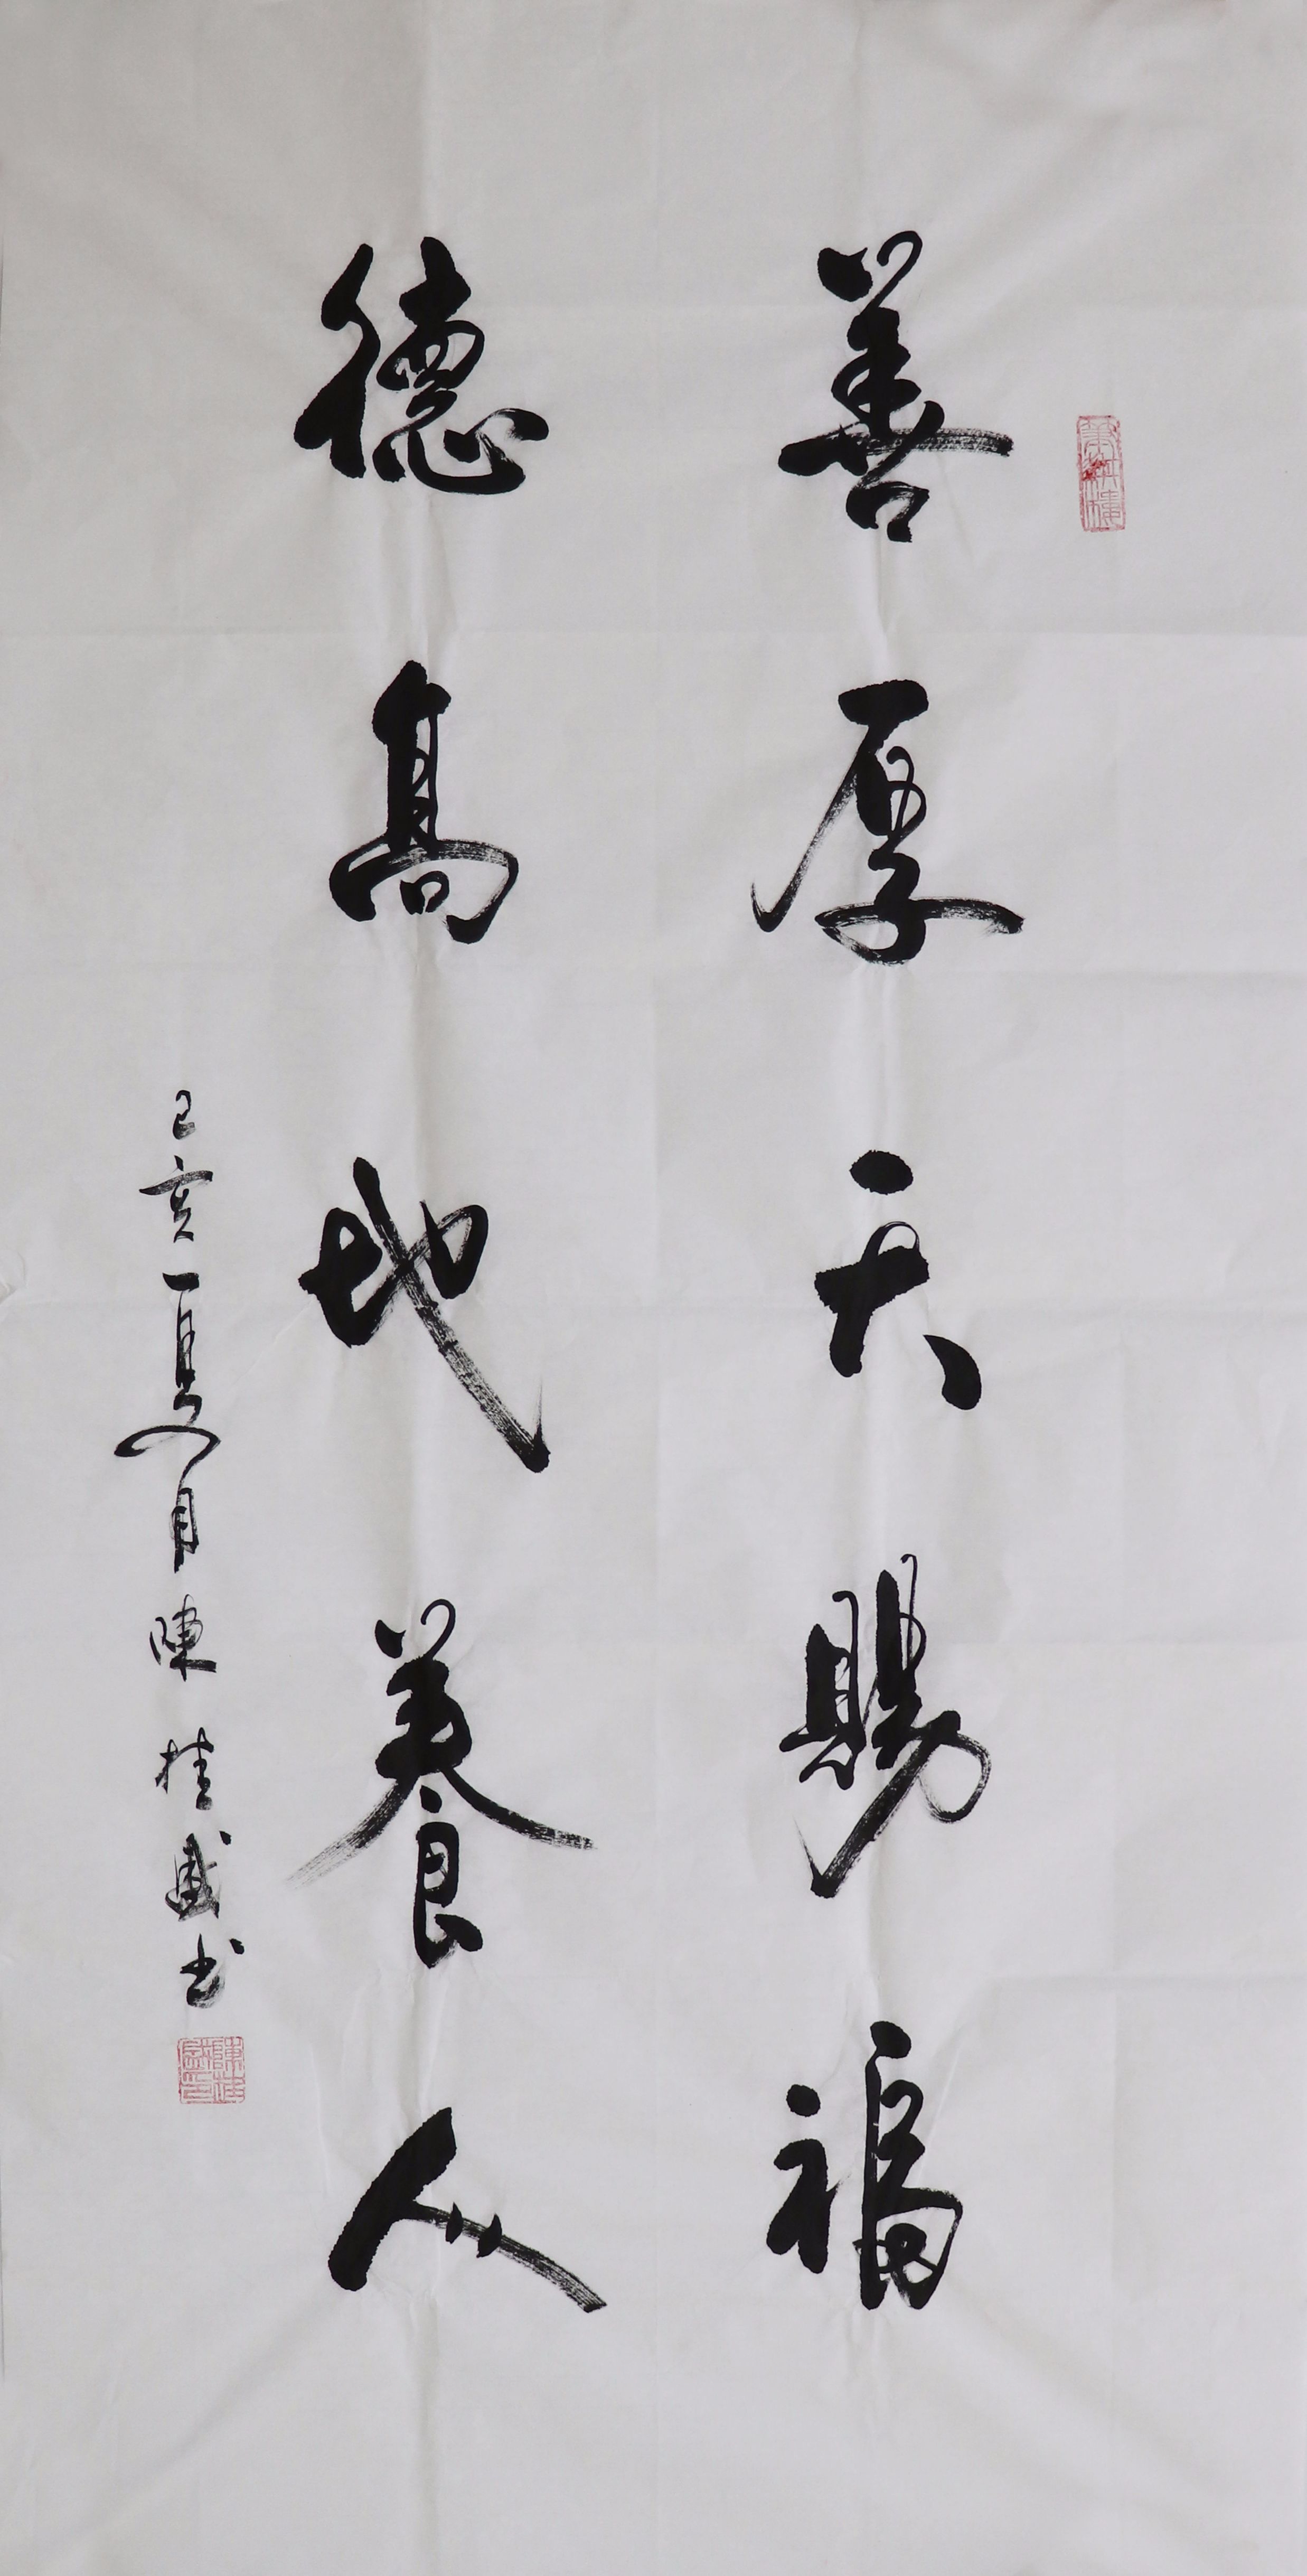 善厚天賜福
德高地養人
己亥夏月陳桂盛书
陳桂盛印